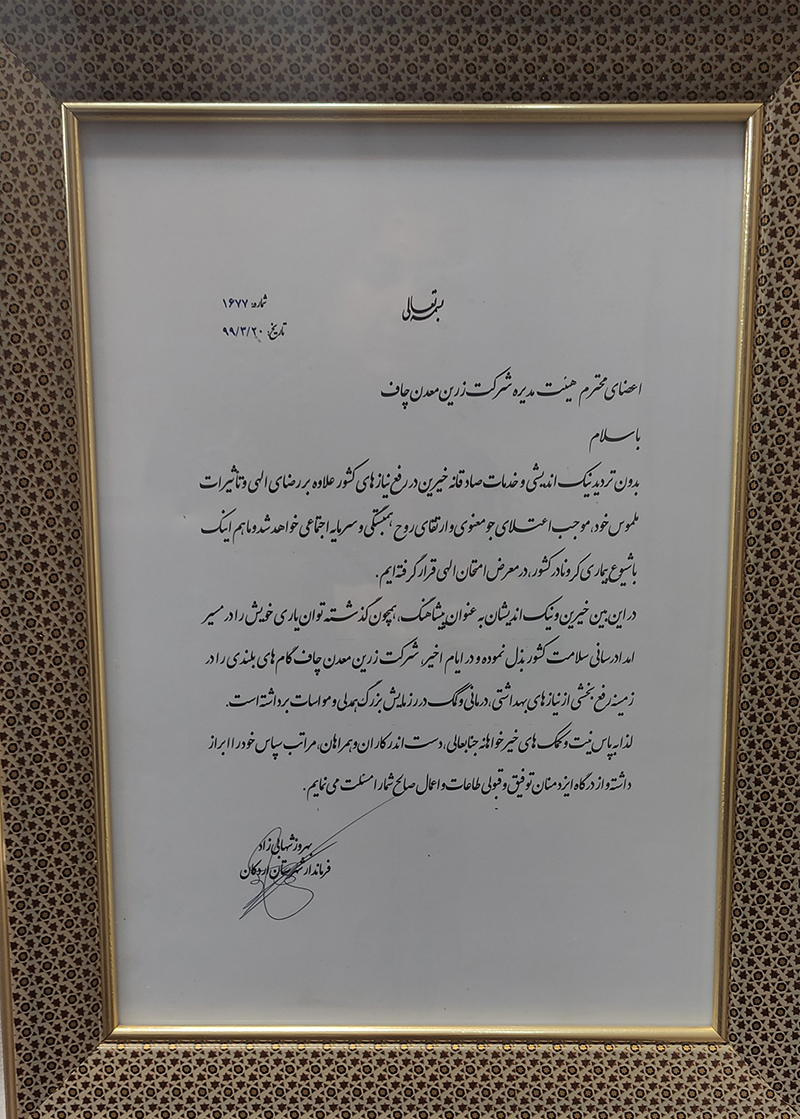 بسمه تعالی
شماره: ۱۶۷۷
تاریخ: ۹۹/۳/۲۰
اعضای محترم هیئت مدیره شرکت زرین معدن چاف
با سلام
بدون تردید نیک اندیشی و خدمات صادقانه خیرین در رفع نیازهای کشور علاوه بر رضای الهی و تأثیرات
ملموس خود، موجب اعتلای جو معنوی و ارتقای روح همبستگی و سرمایه اجتماعی خواهد شد و ما هم اینک
با شیوع بیماری کرونا در کشور، در معرض امتحان الهی قرار گرفته ایم.
در این بین خیرین و نیک اندیشان به عنوان پیشاهنگ، همچون گذشته توان یاری خویش را در مسیر
امدادرسانی سلامت کشور بذل نموده و در ایام اخیر، شرکت زرین معدن چاف گام های بلندی را در
زمینه رفع بخشی از نیازهای بهداشتی، درمانی و کمک در رزمایش بزرگ همدلی و مواسات برداشته است.
لذا به پاس نیت و کمک های خیرخواهانه جنابعالی، دست اندرکاران و همراهان، مراتب سپاس خود را ابراز
داشته و از درگاه ایزد منان توفیق و قبولی طاعات و اعمال صالح شما را مسئلت می نمایم.
بهروز شهابی زاد
فرماندار شهرستان اردکان